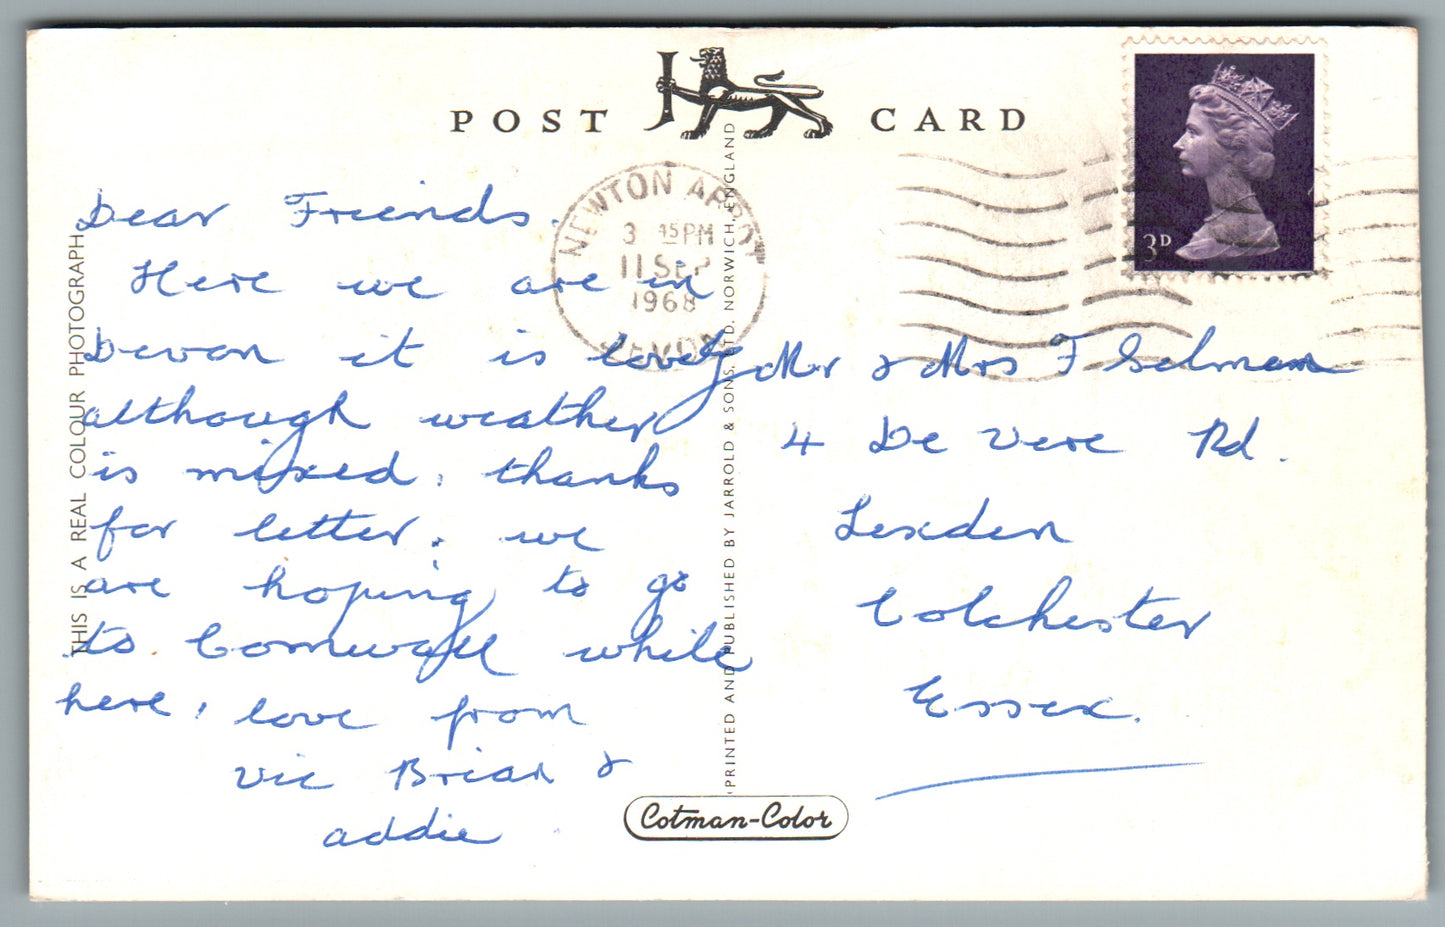 POST CARD
NEWTON ABBOT
3 45 PM
11 SEP
1968
DEVON
3D
THIS IS A REAL COLOUR PHOTOGRAPH
Dear Friends.
Here we are in
Devon it is lovely
although weather
is mixed. thanks
for letter. we
are hoping to go
to Cornwall while
here. love from
Vic Brian &
addie.
PRINTED AND PUBLISHED BY JARROLD & SONS, LTD. NORWICH, ENGLAND
Mr & Mrs F Selmam
4 De Vere Rd.
Lexden
Colchester
Essex.
Cotman-Color